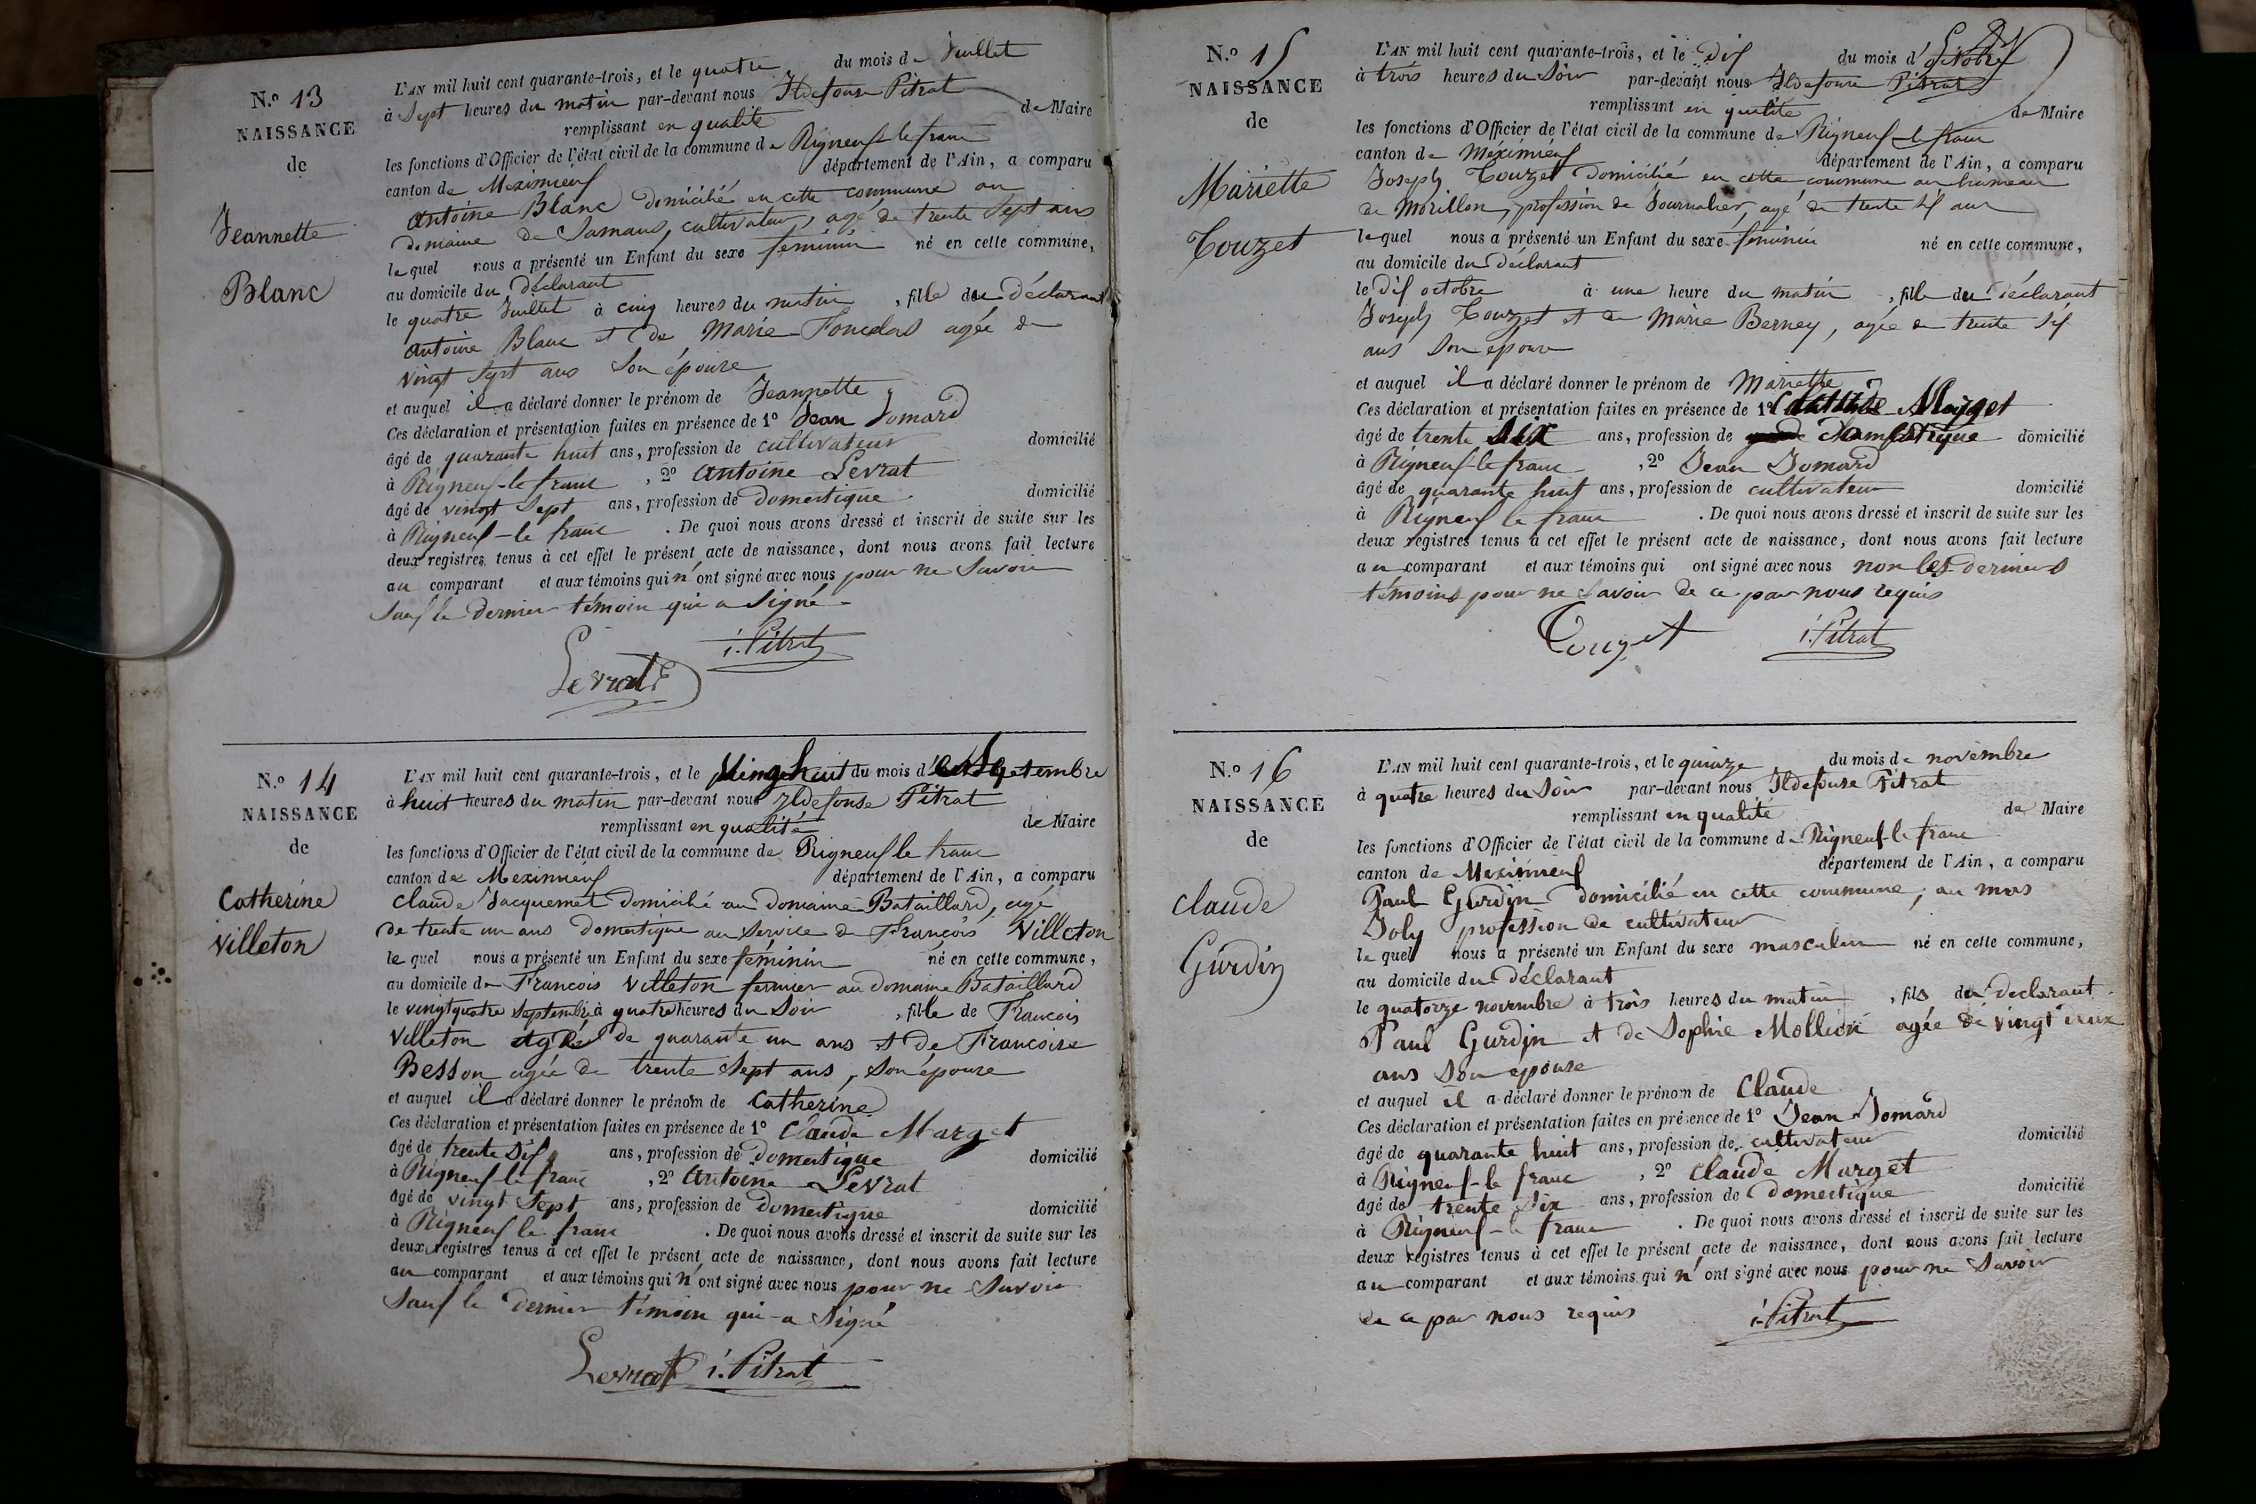 N.º 13
NAISSANCE
de
Jeannette
Blanc
L'AN mil huit cent quarante-trois, et le quatre du mois de Juillet
à Sept heures du matin par-devant nous Ildefonse Pitrat
remplissant en qualité de Maire
les fonctions d'Officier de l'état civil de la commune de Rigneux-le franc
canton de Meximieux département de l'Ain, a comparu
antoine Blanc domicilié en cette commune au
domaine de Samans, cultivateur, agé de trente Sept ans
lequel nous a présenté un Enfant du sexe féminin né en cette commune,
au domicile du déclarant
le quatre Juillet à cinq heures du matin, fille du déclarant
antoine Blanc et de Marie agée de
vingt Sept ans Son épouse
et auquel il a déclaré donner le prénom de Jeannette
Ces déclaration et présentation faites en présence de 1º Jean Jomard
âgé de quarante huit ans, profession de cultivateur domicilié
à Rigneux-le franc, 2º antoine Levrat
âgé de vingt Sept ans, profession de domestique domicilié
à Rigneux-le franc. De quoi nous avons dressé et inscrit de suite sur les
deux registres tenus à cet effet le présent acte de naissance, dont nous avons fait lecture
au comparant et aux témoins qui n'ont signé avec nous pour ne Savoir
Sauf le dernier témoin qui a Signé
Levrat i. Pitrat
N.º 14
NAISSANCE
de
Catherine
Villeton
L'AN mil huit cent quarante-trois, et le Vingt huit du mois de Septembre
à huit heures du matin par-devant nous Ildefonse Pitrat
remplissant en qualité de Maire
les fonctions d'Officier de l'état civil de la commune de Rigneux le franc
canton de Meximieux département de l'Ain, a comparu
claude Jacquemet domicilié au domaine Bataillard, agé
de trente un ans domestique au Service de François Villeton
lequel nous a présenté un Enfant du sexe féminin né en cette commune,
au domicile de Francois Villeton fermier au domaine Bataillard
le vingt quatre septembre à quatre heures du Soir, fille de Francois
Villeton agé de quarante un ans et de Francoise
Besson agée de trente Sept ans, Son épouse
et auquel il a déclaré donner le prénom de Catherine
Ces déclaration et présentation faites en présence de 1º Claude Marget
âgé de trente Six ans, profession de Domestique domicilié
à Rigneux-le franc, 2º antoine Levrat
âgé de vingt Sept ans, profession de domestique domicilié
à Rigneux le franc. De quoi nous avons dressé et inscrit de suite sur les
deux registres tenus à cet effet le présent acte de naissance, dont nous avons fait lecture
au comparant et aux témoins qui n'ont signé avec nous pour ne Savoir
Sauf le dernier témoin qui a Signé
Levrat i. Pitrat
N.º 15
NAISSANCE
de
Mariette
Touzet
L'AN mil huit cent quarante-trois, et le Dix du mois d'Octobre
à trois heures du Soir par-devant nous Ildefonse Pitrat
remplissant en qualité de Maire
les fonctions d'Officier de l'état civil de la commune de Rigneux-le franc
canton de Méximieux département de l'Ain, a comparu
Joseph Touzet domicilié en cette commune au hameau
de Morillon, profession de Journalier, agé de trente Six ans
lequel nous a présenté un Enfant du sexe féminin né en cette commune,
au domicile du déclarant
le dix octobre à une heure du matin, fille du déclarant
Joseph Touzet et de Marie Berney, agée de trente Six
ans Son épouse
et auquel il a déclaré donner le prénom de Mariette
Ces déclaration et présentation faites en présence de 1º Claude Marget
âgé de trente Six ans, profession de domestique domicilié
à Rigneux-le franc, 2º Jean Jomard
âgé de quarante huit ans, profession de cultivateur domicilié
à Rigneux le franc. De quoi nous avons dressé et inscrit de suite sur les
deux registres tenus à cet effet le présent acte de naissance, dont nous avons fait lecture
au comparant et aux témoins qui ont signé avec nous non les derniers
témoins pour ne Savoir de ce par nous requis
Touzet i. Pitrat
N.º 16
NAISSANCE
de
claude
Gurdin
L'AN mil huit cent quarante-trois, et le quinze du mois de novembre
à quatre heures du Soir par-devant nous Ildefonse Pitrat
remplissant en qualité de Maire
les fonctions d'Officier de l'état civil de la commune de Rigneux-le franc
canton de Meximieux département de l'Ain, a comparu
Paul Gurdin domicilié en cette commune, au mas
Joly profession de cultivateur
lequel nous a présenté un Enfant du sexe masculin né en cette commune,
au domicile du déclarant
le quatorze novembre à trois heures du matin, fils du déclarant
Paul Gurdin et de Sophie Mollion agée de vingt deux
ans Son épouse
et auquel il a déclaré donner le prénom de Claude
Ces déclaration et présentation faites en présence de 1º Jean Jomard
âgé de quarante huit ans, profession de cultivateur domicilié
à Rigneux-le franc, 2º Claude Marget
âgé de trente Six ans, profession de domestique domicilié
à Rigneux-le franc. De quoi nous avons dressé et inscrit de suite sur les
deux registres tenus à cet effet le présent acte de naissance, dont nous avons fait lecture
au comparant et aux témoins qui n'ont signé avec nous pour ne Savoir
de ce par nous requis i. Pitrat